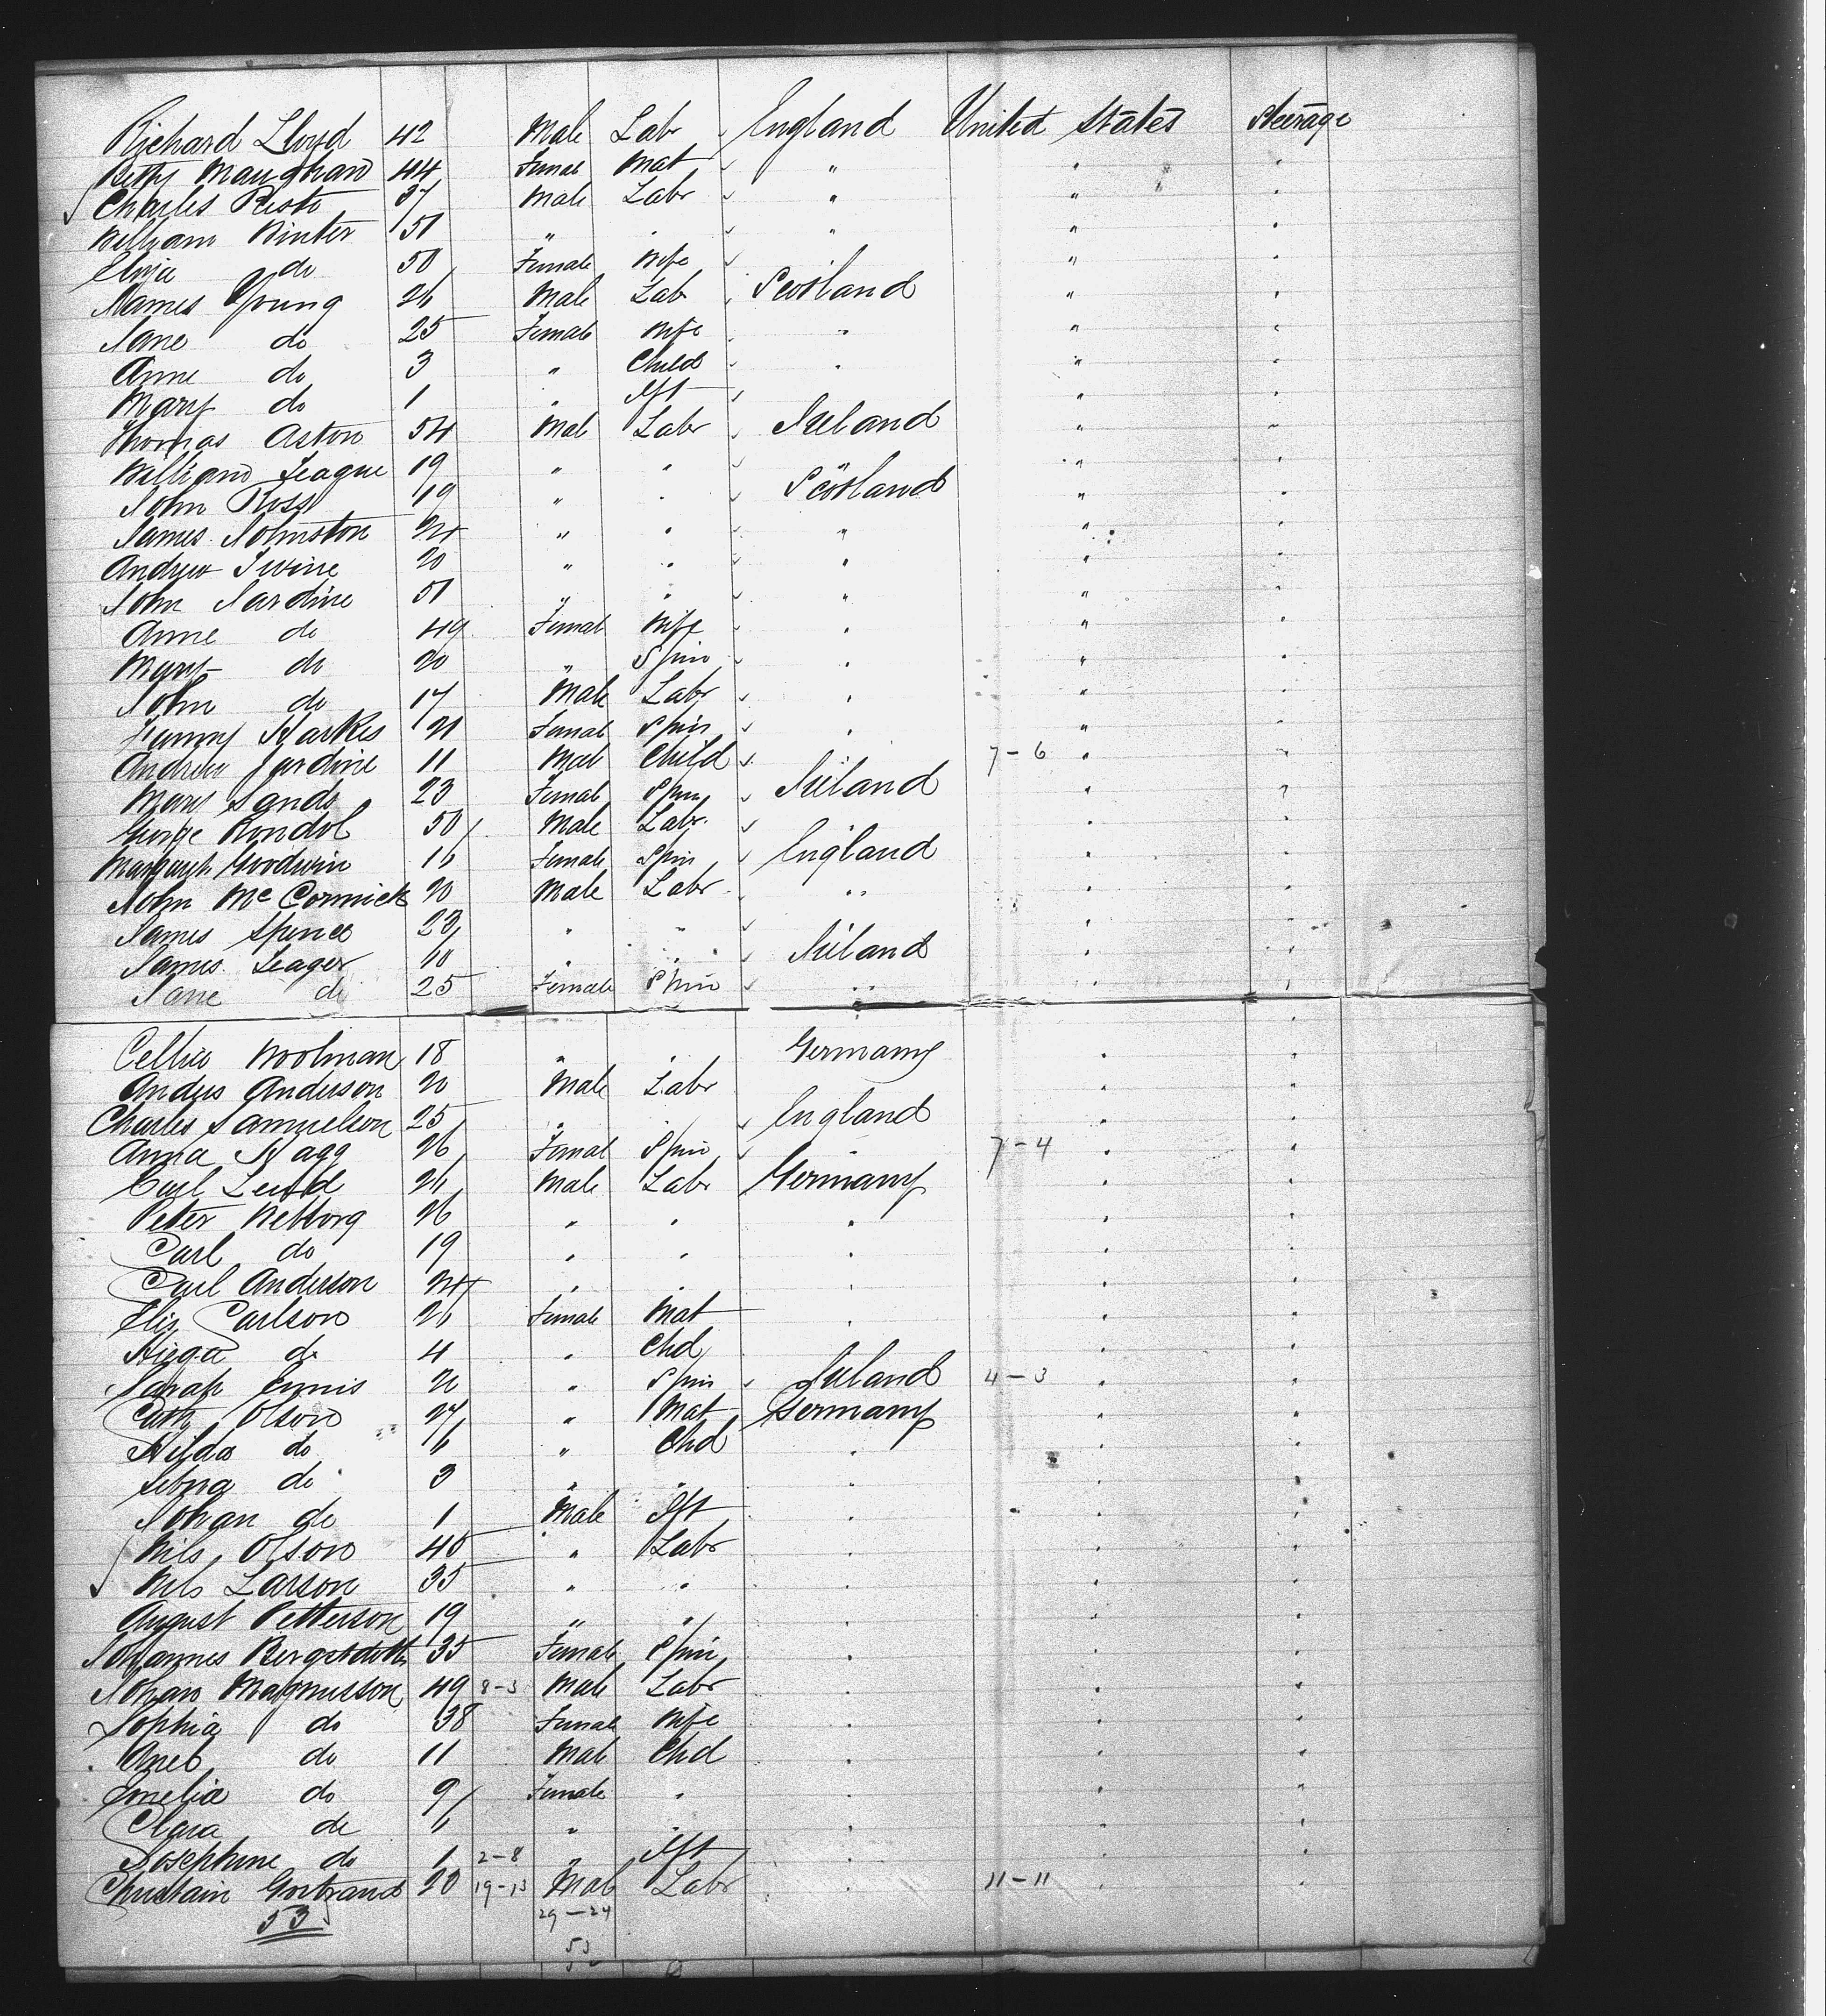 Richard Lloyd 42 Male Labr England United States Steerage
Betty Maughan 44 Female Mat " " "
Charles Risto 37 Male Labr " " "
William Winter 51 " " " " "
Eliza do 50 Female Wife " "
James Young 26 Male Lab Scotland " "
Jane do 25 Female Wife " " "
Anne do 3 " Child " " "
Mary do 1 " Ift " "
Thomas Aston 54 Male Labr Ireland " "
William League 19 " " " "
John Ross 19 " " Scotland " "
James Johnston 24 " " " " "
Andrew Irvine 20 " " " " "
John Jardine 51 " " " "
Anne do 49 Female Wife " " "
Mary do 20 " Spin " " "
John do 17 Male Labr " " "
Fanny Harkes 21 Female Spin " " "
Andrew Jardine 11 Male Child 7-6 " "
Mary Sands 23 Female Spin Ireland " "
George Rondol 50 Male Labr " "
Margaret Goodwin 16 Female Spin England " "
John McCormick 20 Male Labr " " "
James Spence 23 " " " "
James Seager 40 " " Ireland " "
Jane do 25 Female Spin " " "
Woolman 18 " " Germany " "
Anders Anderson 20 Male Labr " "
Charles Samuelson 25 " " England " "
Anna Hagg 26 Female Spin 7-4 " "
Carl 26 Male Labr Germany " "
Peter 26 " " " " "
Carl do 19 " " " " "
Carl Anderson 24 " " " " "
Elis Carlson 26 Female Mat " " "
do 4 " Chd " "
Sarah Ennis 20 " Spin Ireland 4-3 " "
Cath Olson 27 " Mat Germany " "
Hilda do 6 " Chd " " "
do 3 " " " " "
Johan do 1 Male Ift " " "
Nils Olson 45 " Labr " " "
Nils Larson 35 " " " " "
August Petterson 19 " " " " "
Johannes Bergstdottr 35 Female Spin " " "
Johan Magnusson 49 8-3 Male Labr " " "
Sophia do 38 Female Wife " " "
do 11 Male Chd " " "
Emelia do 9 Female " " " "
Clara do 6 " " " " "
Josephine do 1 2-8 " Ift " " "
Christain 20 19-13 Male Labr " 11-11 " "
53 29-24
53